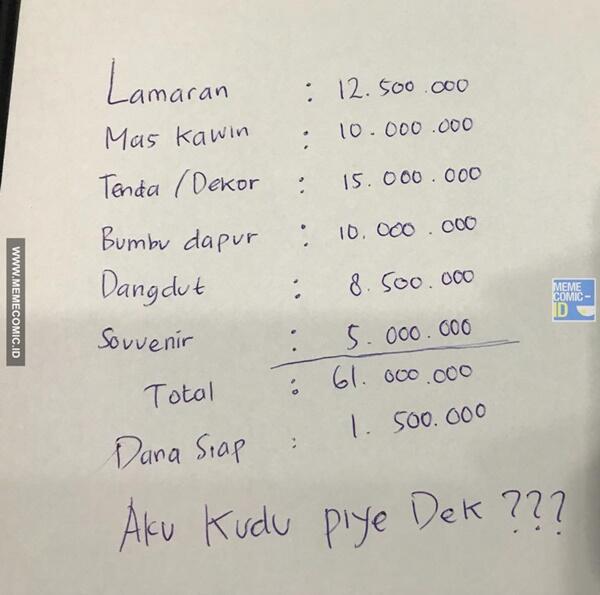 Lamaran : 12.500.000
Mas Kawin : 10.000.000
Tenda /Dekor : 15.000.000
Bumbu dapur : 10.000.000
Dangdut : 8.500.000
Souvenir : 5.000.000
Total : 61.000.000
Dana Siap : 1.500.000
Aku Kudu piye Dek ???
WWW.MEMECOMIC.ID
MEME
COMIC-
ID